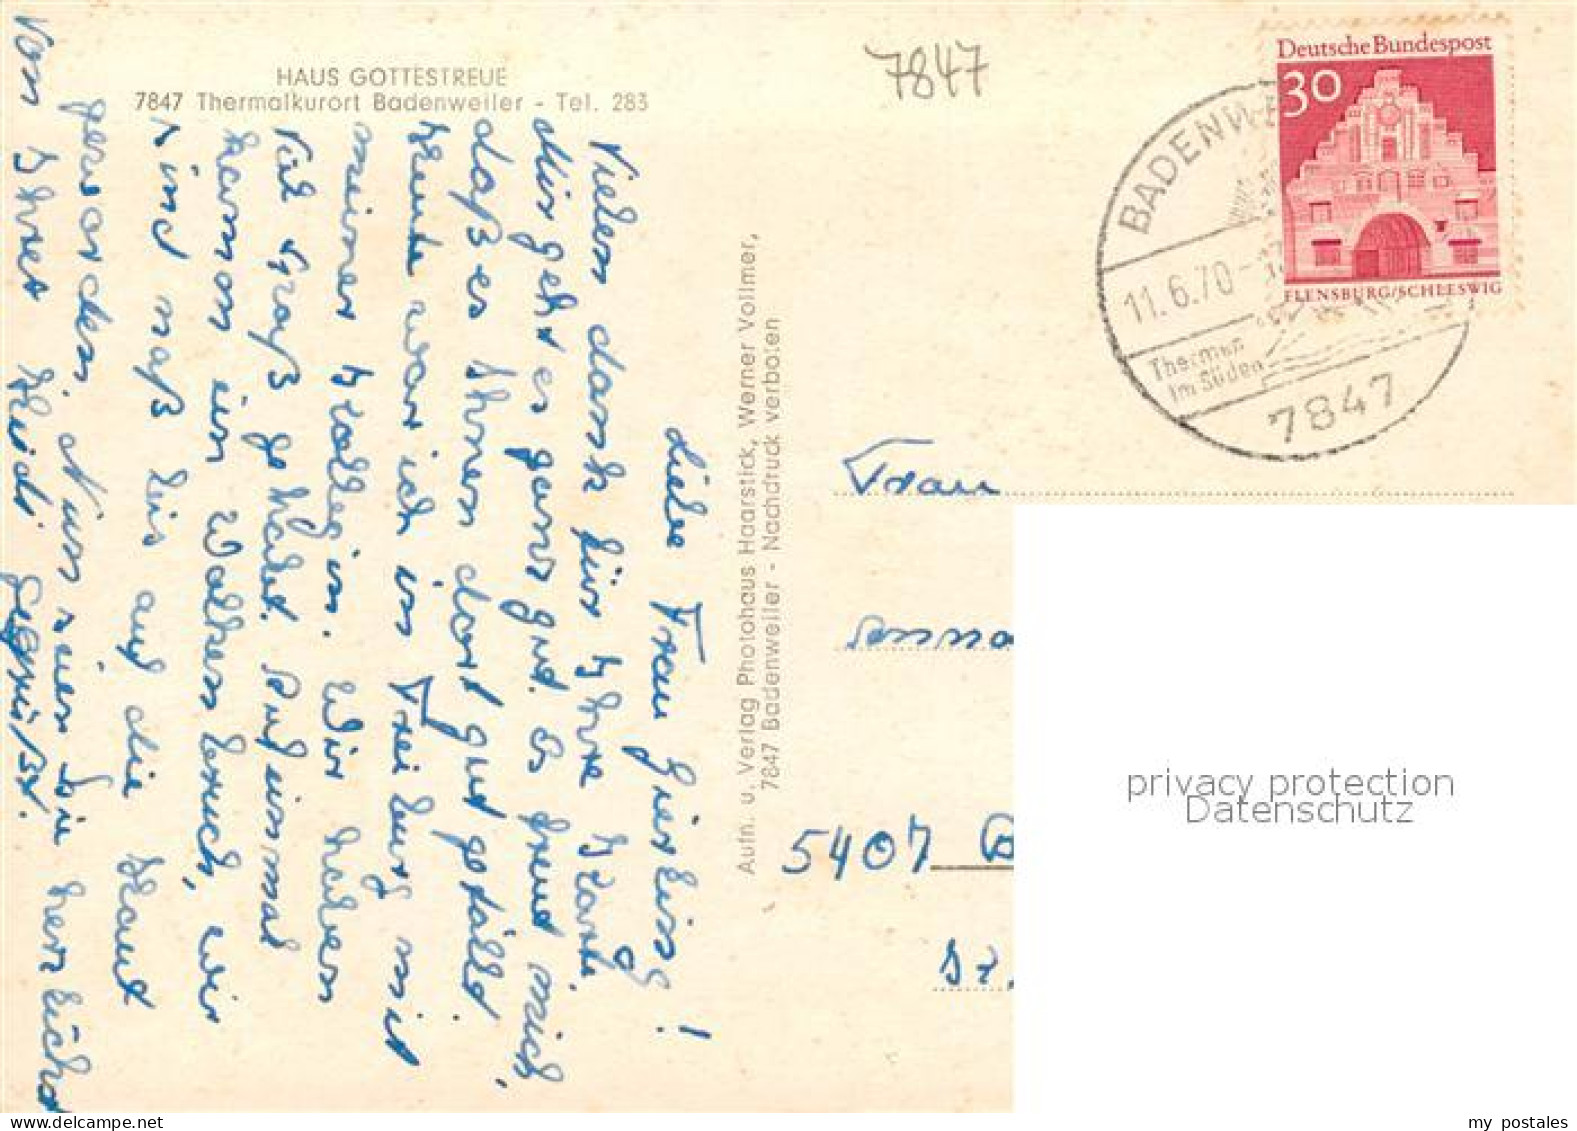 HAUS GOTTESTREUE
7847 Thermalkurort Badenweiler - Tel. 283
7847
Deutsche Bundespost
30
FLENSBURG/SCHLESWIG
BADENW
11.6.70-
Thermen
im Süden
7847
Liebe Frau
Vielen dank für Ihre Karte.
Mir geht es ganz gut. Es freut mich
daß es Ihnen dort gut gefällt.
Heute war ich in Freiburg mit
meiner Kollegin. Wir haben
viel Spaß gehabt. Auf einmal
kam ein Wolkenbruch, wir
sind naß bis auf die Haut
geworden. Nun seien Sie herzlichst
von Ihrer Heidi gegrüßt.
Aufn. u. Verlag Photohaus Haarstick, Werner Vollmer,
7847 Badenweiler - Nachdruck verboten
Frau
5407 B
privacy protection
Datenschutz
my postales